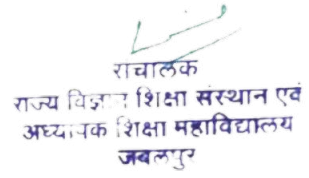 राचालक
राज्य विज्ञान शिक्षा संस्थान एवं
अध्यापक शिक्षा महाविद्यालय
जबलपुर